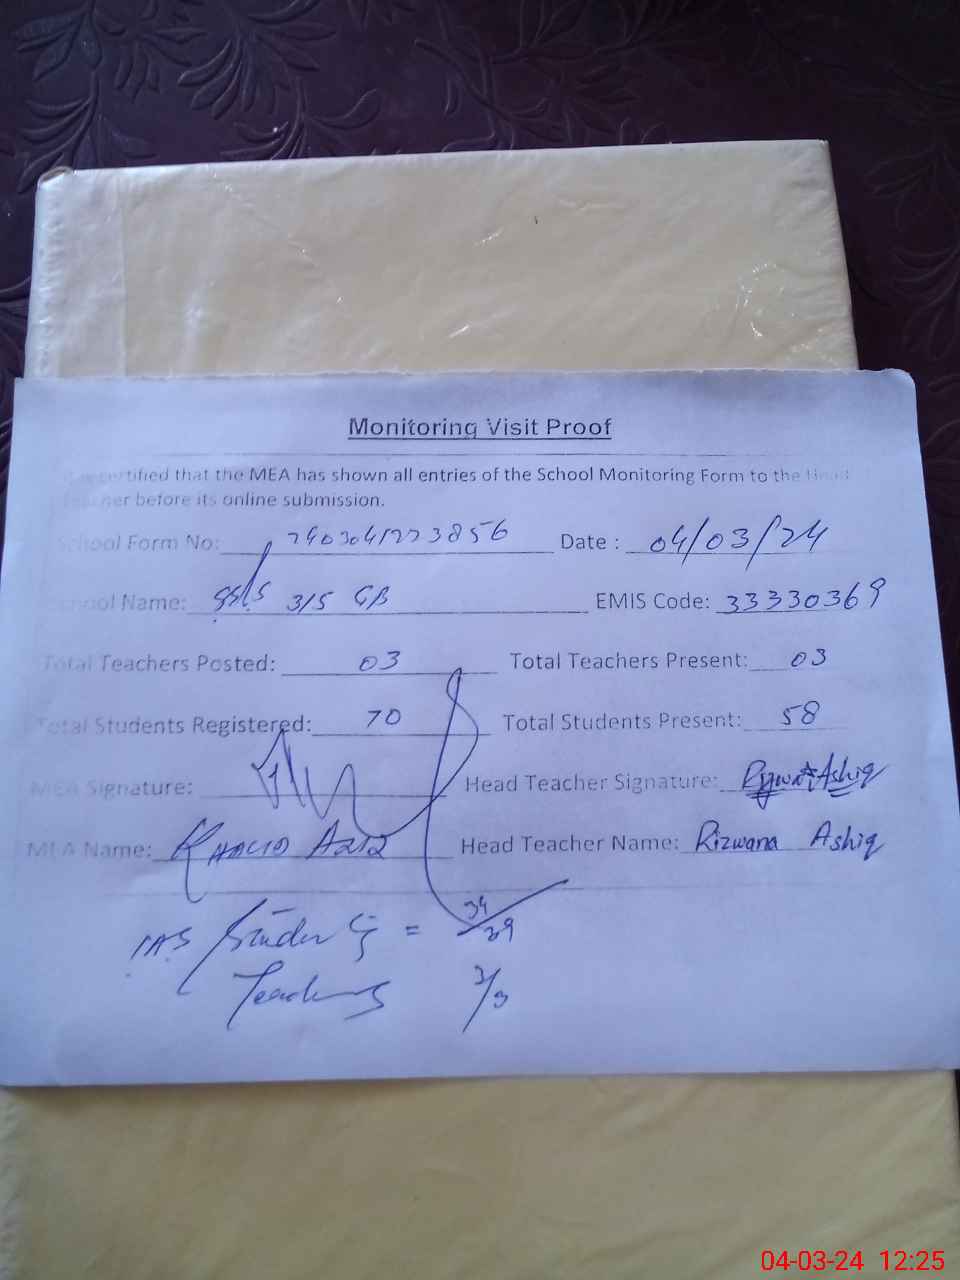 Monitoring Visit Proof
It is certified that the MEA has shown all entries of the School Monitoring Form to the Head
Teacher before its online submission.
School Form No: Date: 04/03/24
School Name: 3/5 GB EMIS Code: 33330369
Total Teachers Posted: 03 Total Teachers Present: 03
Total Students Registered: 70 Total Students Present: 58
MEA Signature: Head Teacher Signature: Rizwana Ashiq
MEA Name: Khalid Aziz Head Teacher Name: Rizwana Ashiq
= 34/39
Teachers 3/3
04-03-24 12:25